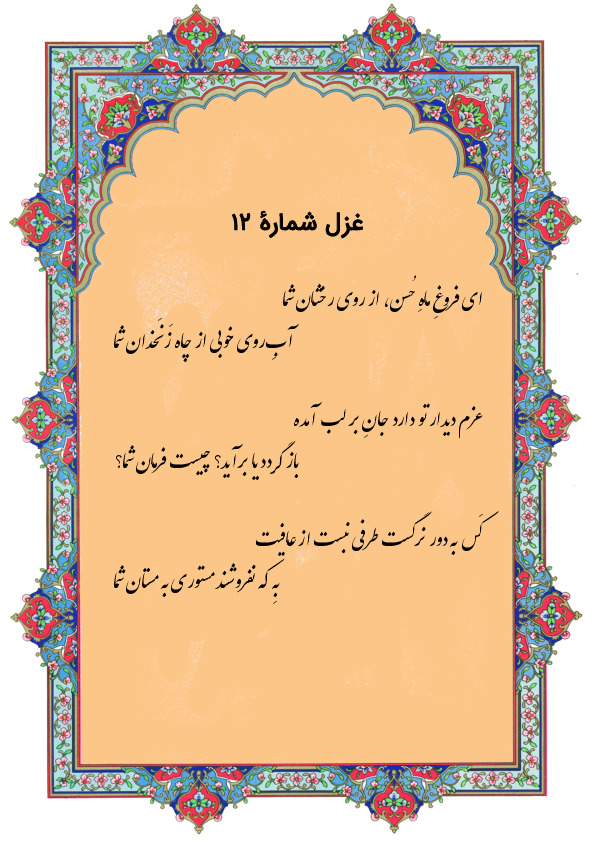 غزل شمارهٔ ۱۲
ای فروغِ ماهِ حُسن، از روی رخشان شما
آبِ روی خوبی از چاه زَنَخدان شما
عزم دیدار تو دارد جانِ بر لب آمده
باز گردد یا برآید؟ چیست فرمان شما؟
کَس به دور نرگست طرفی نبست از عافیت
بِه که نفروشند مستوری به مستان شما